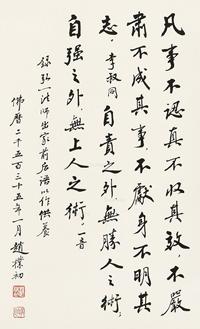 凡事不认真不收其效，不严
肃不成其事，不献身不明其
志。李叔同 自责之外，無勝人之術，
自强之外，無上人之術。一音
錄弘一法師出家前后語以作供養
佛曆二千五百三十五年 月 趙樸初